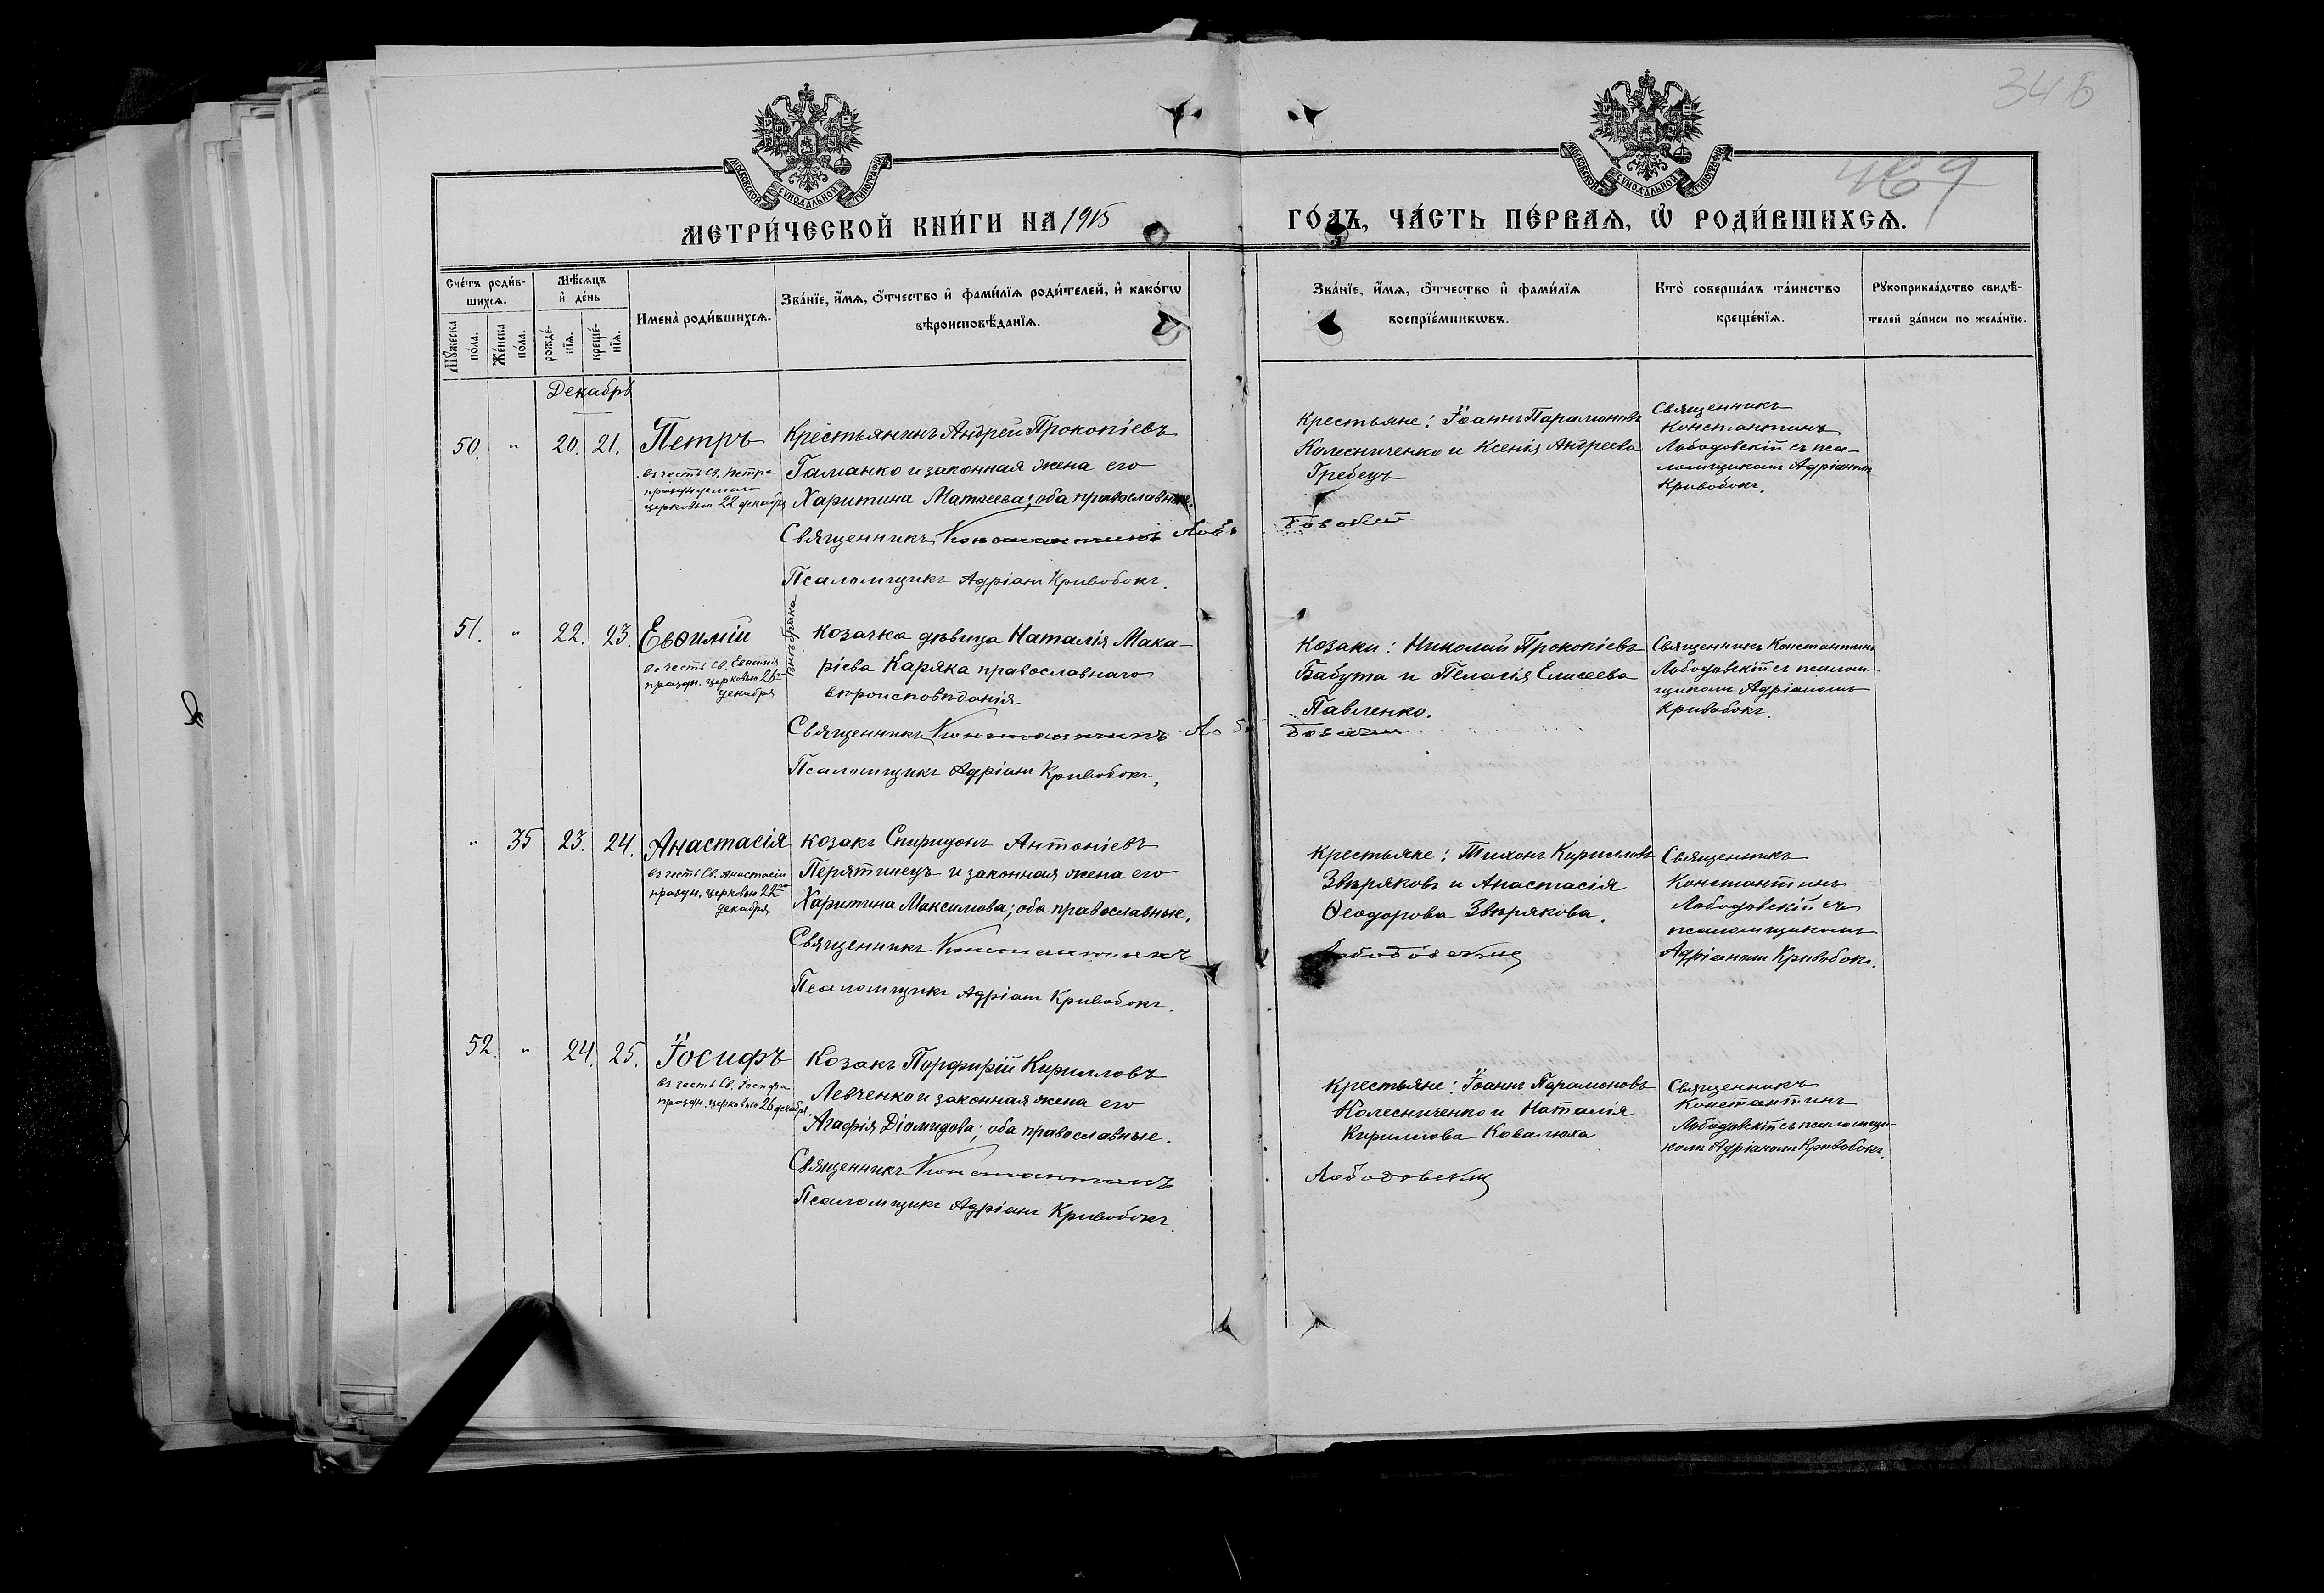 346
469
МОСКОВСКОЙ СѴНОДАЛЬНОЙ ТИПОГРАФІИ
МОСКОВСКОЙ СѴНОДАЛЬНОЙ ТИПОГРАФІИ
МЕТРИ́ЧЕСКОЙ КНИ́ГИ НА 1915
ГО́ДЪ, ЧА́СТЬ ПЕ́РВАѦ, Ѡ҆ РОДИ́ВШИХСѦ.
Сче́тъ роди́в-
шихсѧ.
Мѣ́сѧцъ
и҆ де́нь
Мꙋ́жеска
по́ла.
Же́нска
по́ла.
рожде́-
нїѧ.
креще́-
нїѧ.
Имена̀ роди́вшихсѧ.
Зва́нїе, и҆́мѧ, ѻ҆́тчество и҆ фами́лїѧ роди́телей, и҆ како́гѡ
вѣроисповѣ́данїѧ.
Зва́нїе, и҆́мѧ, ѻ҆́тчество и҆ фами́лїѧ
воспрїе́мникѡвъ.
Кто̀ соверша́лъ та́инство
креще́нїѧ.
Рꙋкоприкла́дство свидѣ́-
телей за́писи по жела́нїю.
Декабрь
50. " 20. 21. Петръ
въ честь Св. Петра
празднуемаго
церковью 22 декабря
Крестьянинъ Андрей Прокопіевъ
Гаманко и законная жена его
Харитина Матѳеева; оба православные.
Священникъ Константинъ Лобо
Псаломщикъ Адріанъ Кривобокъ.
Крестьяне: Іоаннъ Парамоновъ
Колесниченко и Ксенія Андреева
Гребецъ
довскій
Священникъ
Константинъ
Лободовскій съ пса-
ломщикомъ Адріаномъ
Кривобокъ.
51. " 22. 23. Евѳимій
въ честь Св. Евѳимія
праздн. церковью 26го
декабря
внѣбрачна
Козачка дѣвица Наталія Мака-
ріева Каряка православнаго
вѣроисповѣданія
Священникъ Константинъ Лобо
Псаломщикъ Адріанъ Кривобокъ.
Козаки: Николай Прокопіевъ
Бабута и Пелагія Елисеева
Павленко.
довскій
Священникъ Константинъ
Лободовскій съ псалом-
щикомъ Адріаномъ
Кривобокъ.
" 35 23. 24. Анастасія
въ честь Св. Анастасіи
праздн. церковью 22го
декабря
Козакъ Спиридонъ Антоніевъ
Перятинецъ и законная жена его
Харитина Максимова; оба православные.
Священникъ Константинъ
Псаломщикъ Адріанъ Кривобокъ.
Крестьяне: Тихонъ Кирилловъ
Звѣряковъ и Анастасія
Ѳеодорова Звѣрякова.
Лободовскій
Священникъ
Константинъ
Лободовскій съ
псаломщикомъ
Адріаномъ Кривобокъ.
52. " 24. 25. Іосифъ
въ честь Св. Іосифа
праздн. церковью 26 декабря.
Козакъ Порфирій Кирилловъ
Левченко и законная жена его
Агафія Діомидова; оба православные.
Священникъ Константинъ
Псаломщикъ Адріанъ Кривобокъ.
Крестьяне: Іоаннъ Парамоновъ
Колесниченко и Наталія
Кириллова Ковалюха
Лободовскій
Священникъ
Константинъ
Лободовскій съ псаломщи-
комъ Адріаномъ Кривобокъ.